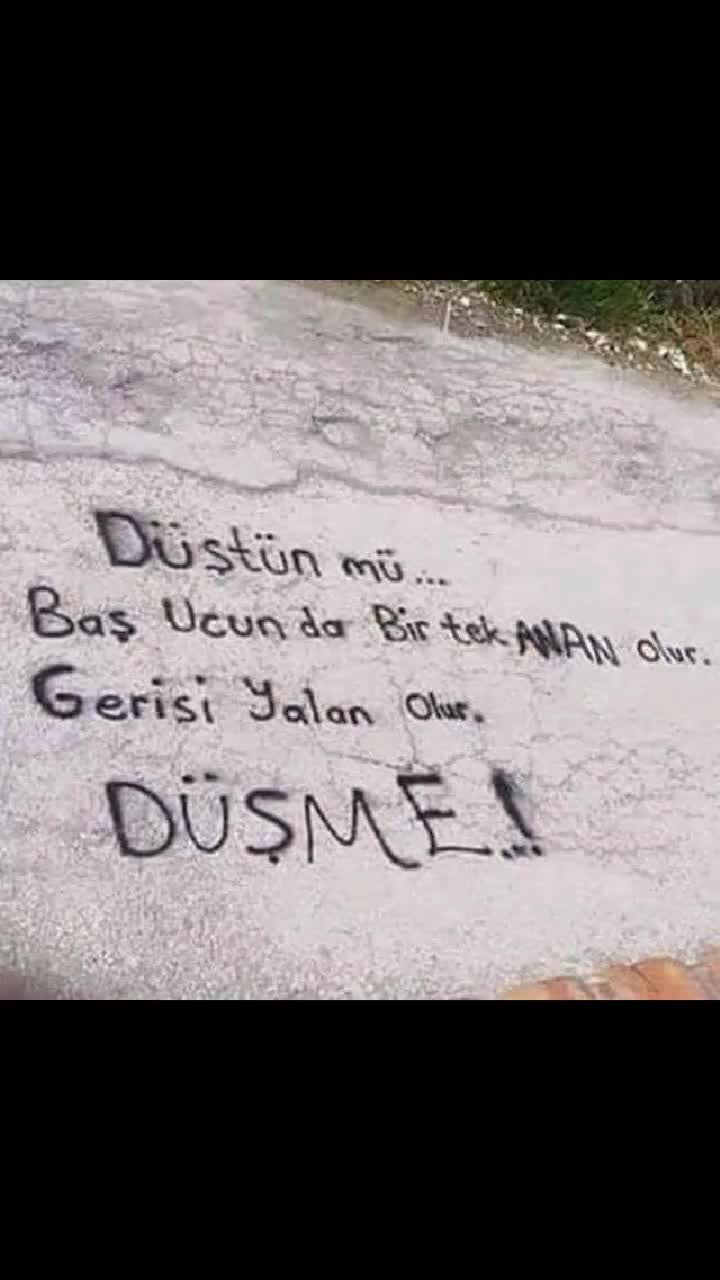 Düştün mü...
Baş Ucun da Bir tek ANAN olur.
Gerisi Yalan Olur.
DÜŞME!...